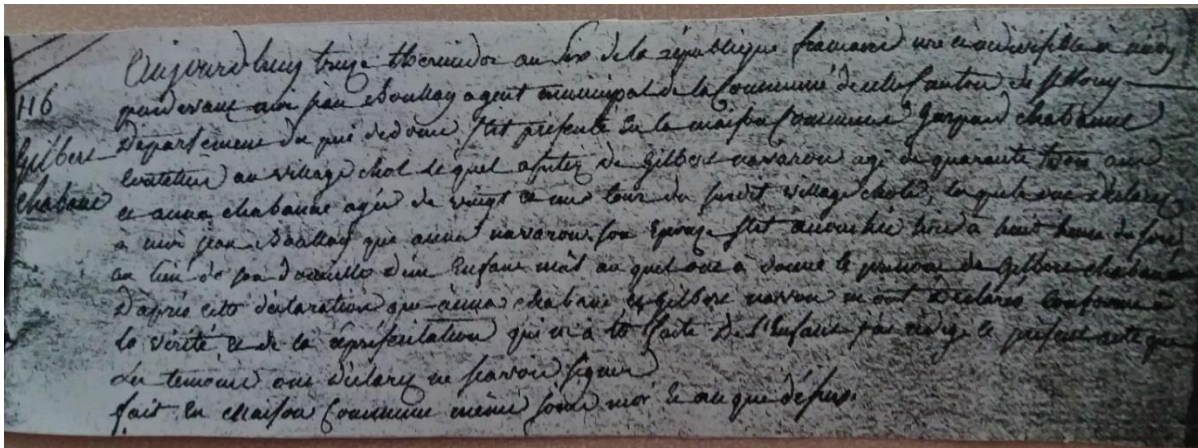 116
Gilbert
Chabane
Aujourdhuy treize thermidor an six de la république francaise une et indivisible à midy
pardevant moi jean Boullay agent municipal de la Commune de celle Canton de
Département du pui dedome Sest présenté En la maison Commune Gaspard chabanne
Cultivateur au village chol le quel assisté de Gilbert navaron agé de quarante trois ans
et anna chabanne agée de vingt et une tous du susdit village ont déclaré
à moi jean Boullay que anna navaron son Epouse Est accouchée hier à huit heures du soir
au lieu de son domicille d'un Enfant mâl au quel on à donné le prenom de Gilbert chabane
D'après cette déclaration que anna chabane et Gilbert navaron mont Déclarés Conforme à
la vérité et de la représentation qui m'a été faite De l'Enfant j'ai rédigé le présent acte que
Les temoins ont déclaré ne savoir signer
fait En maison Commune même jour mois et an que déssus.